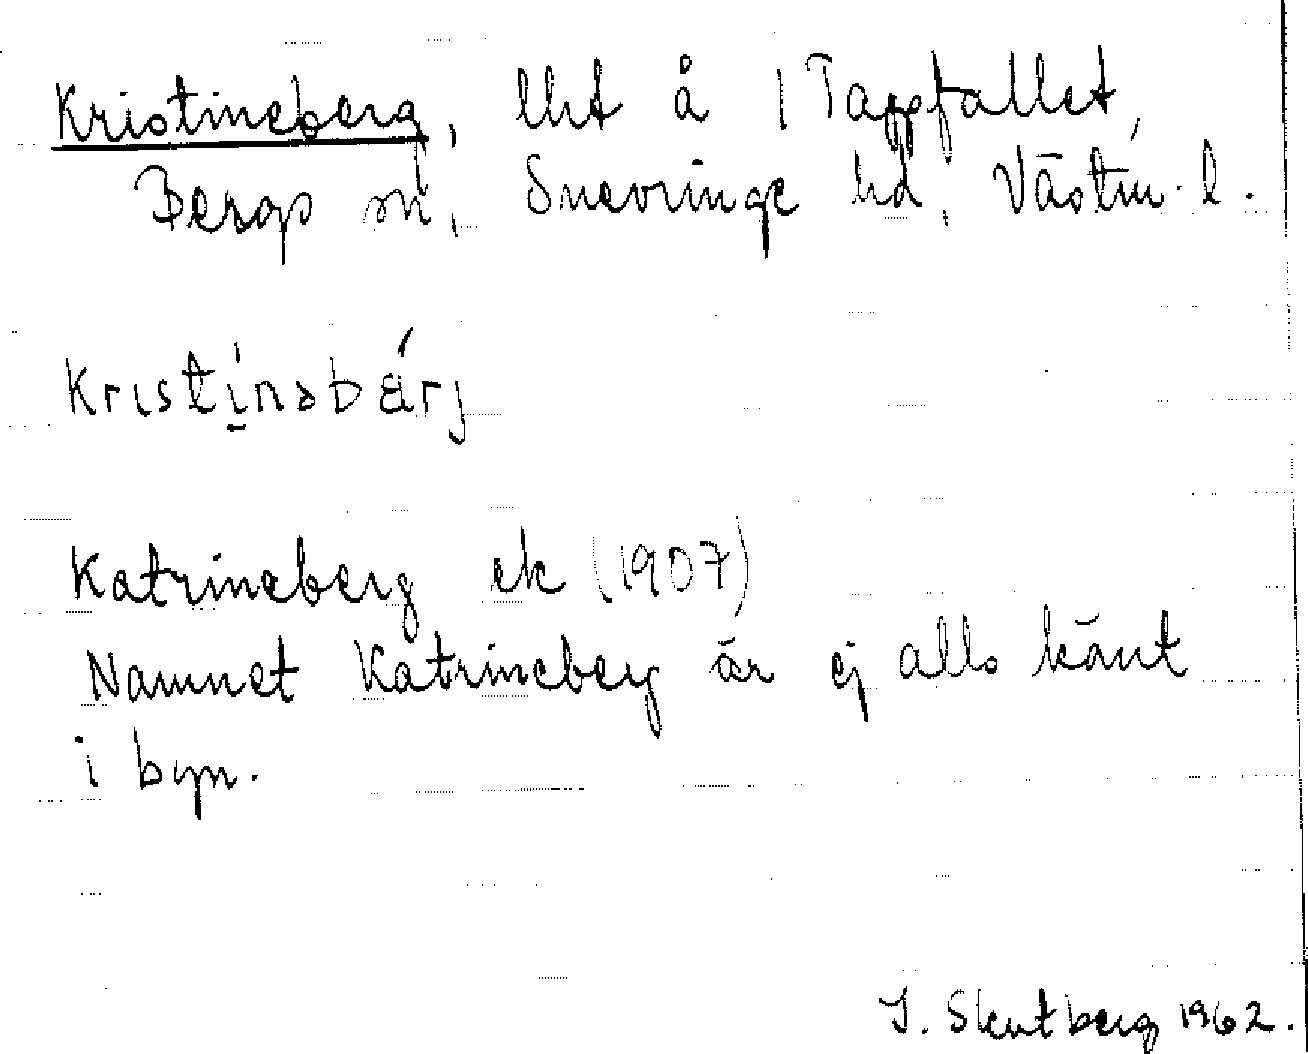 Kristineberg, lht å 1 Tappfallet,
Bergs sn, Snevringe hd, Västm. l.
Kristí̱nəbǽrj
Katrineberg ek (1907)
Namnet Katrineberg är ej alls känt
i byn.
J. Skutberg 1962.